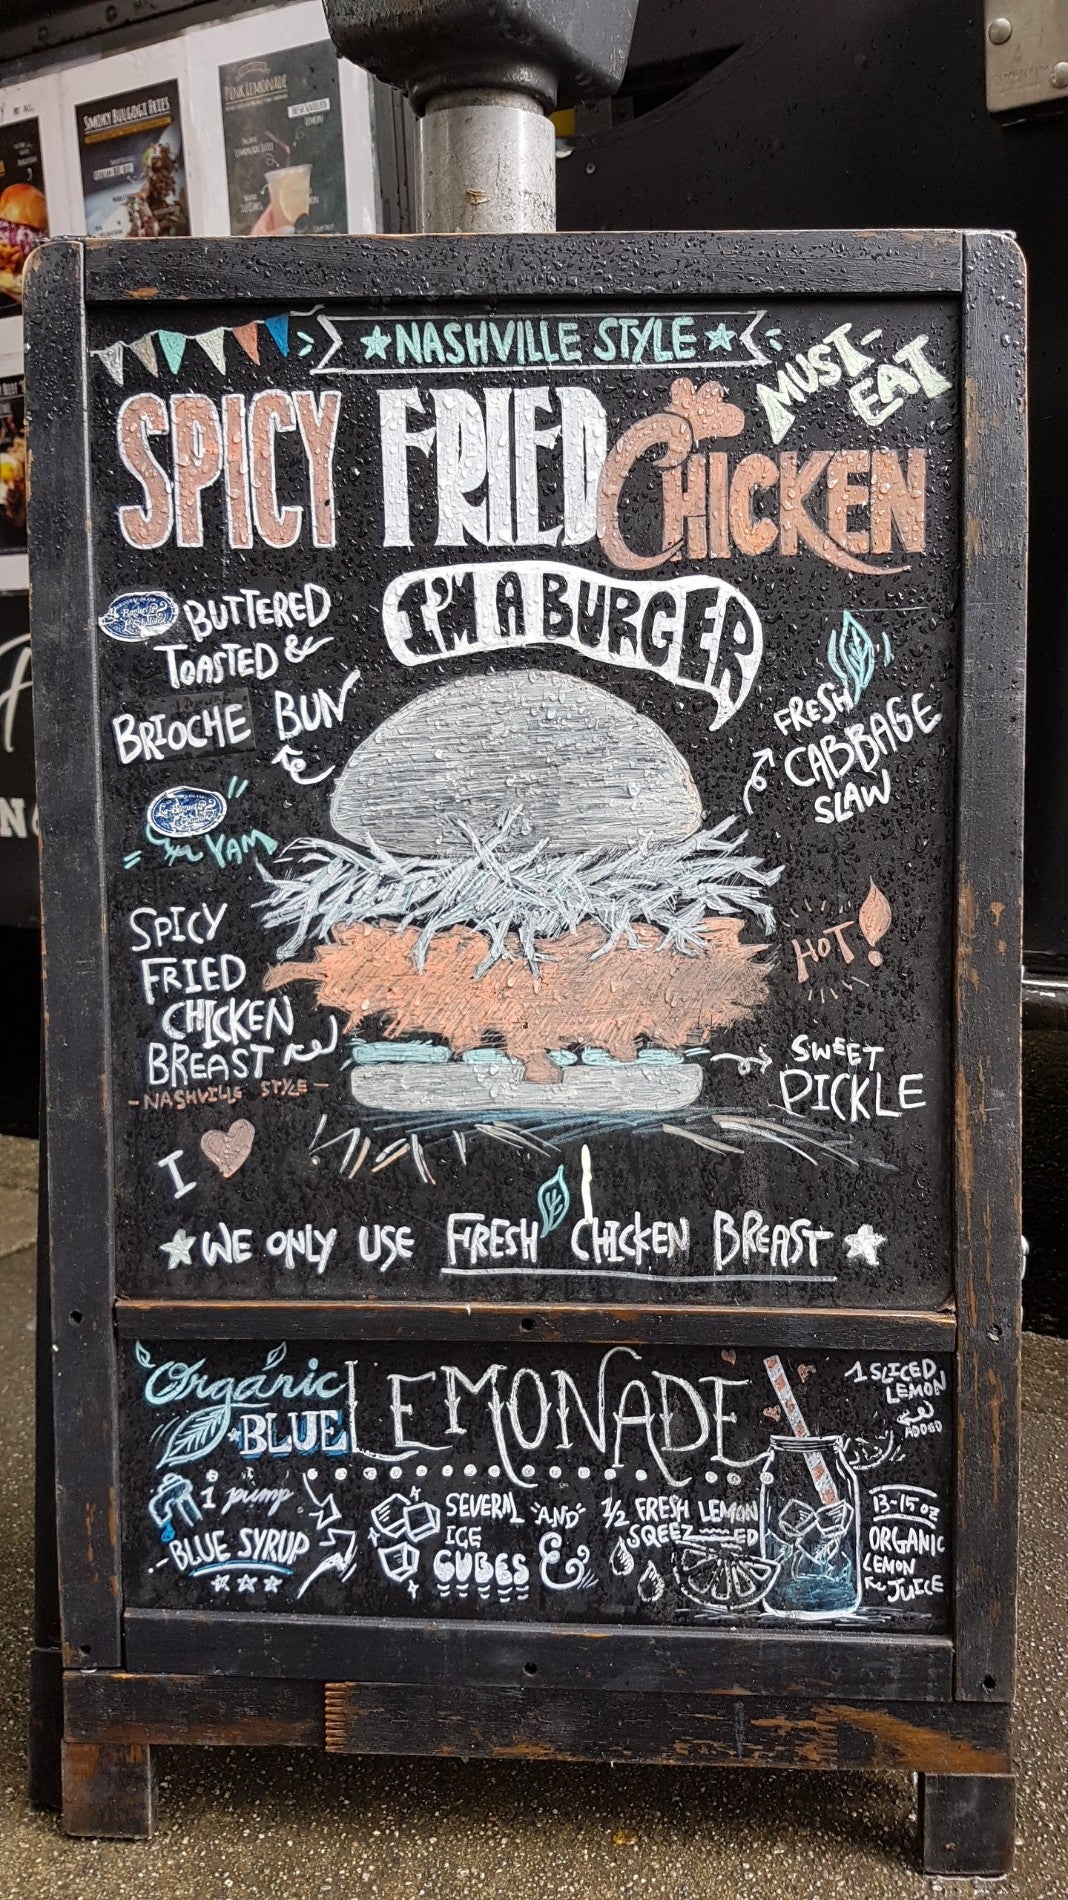 SMOKY BULGOGI FRIES
PINK LEMONADE
LEMON
★NASHVILLE STYLE★
MUST-
EAT
SPICY FRIED CHICKEN
I'M A BURGER
BUTTERED
TOASTED &
BRIOCHE BUN
FRESH
CABBAGE
SLAW
YAM
SPICY
FRIED
CHICKEN
BREAST
-NASHVILLE STYLE-
HOT!
SWEET
PICKLE
I
★WE ONLY USE FRESH CHICKEN BREAST★
Organic
BLUE LEMONADE
1 SLICED
LEMON
ADDED
1 pump
-BLUE SYRUP
SEVERAL
ICE
CUBES
"AND"
&
1/2 FRESH LEMON
SQEEZED
13-15 OZ
ORGANIC
LEMON
JUICE